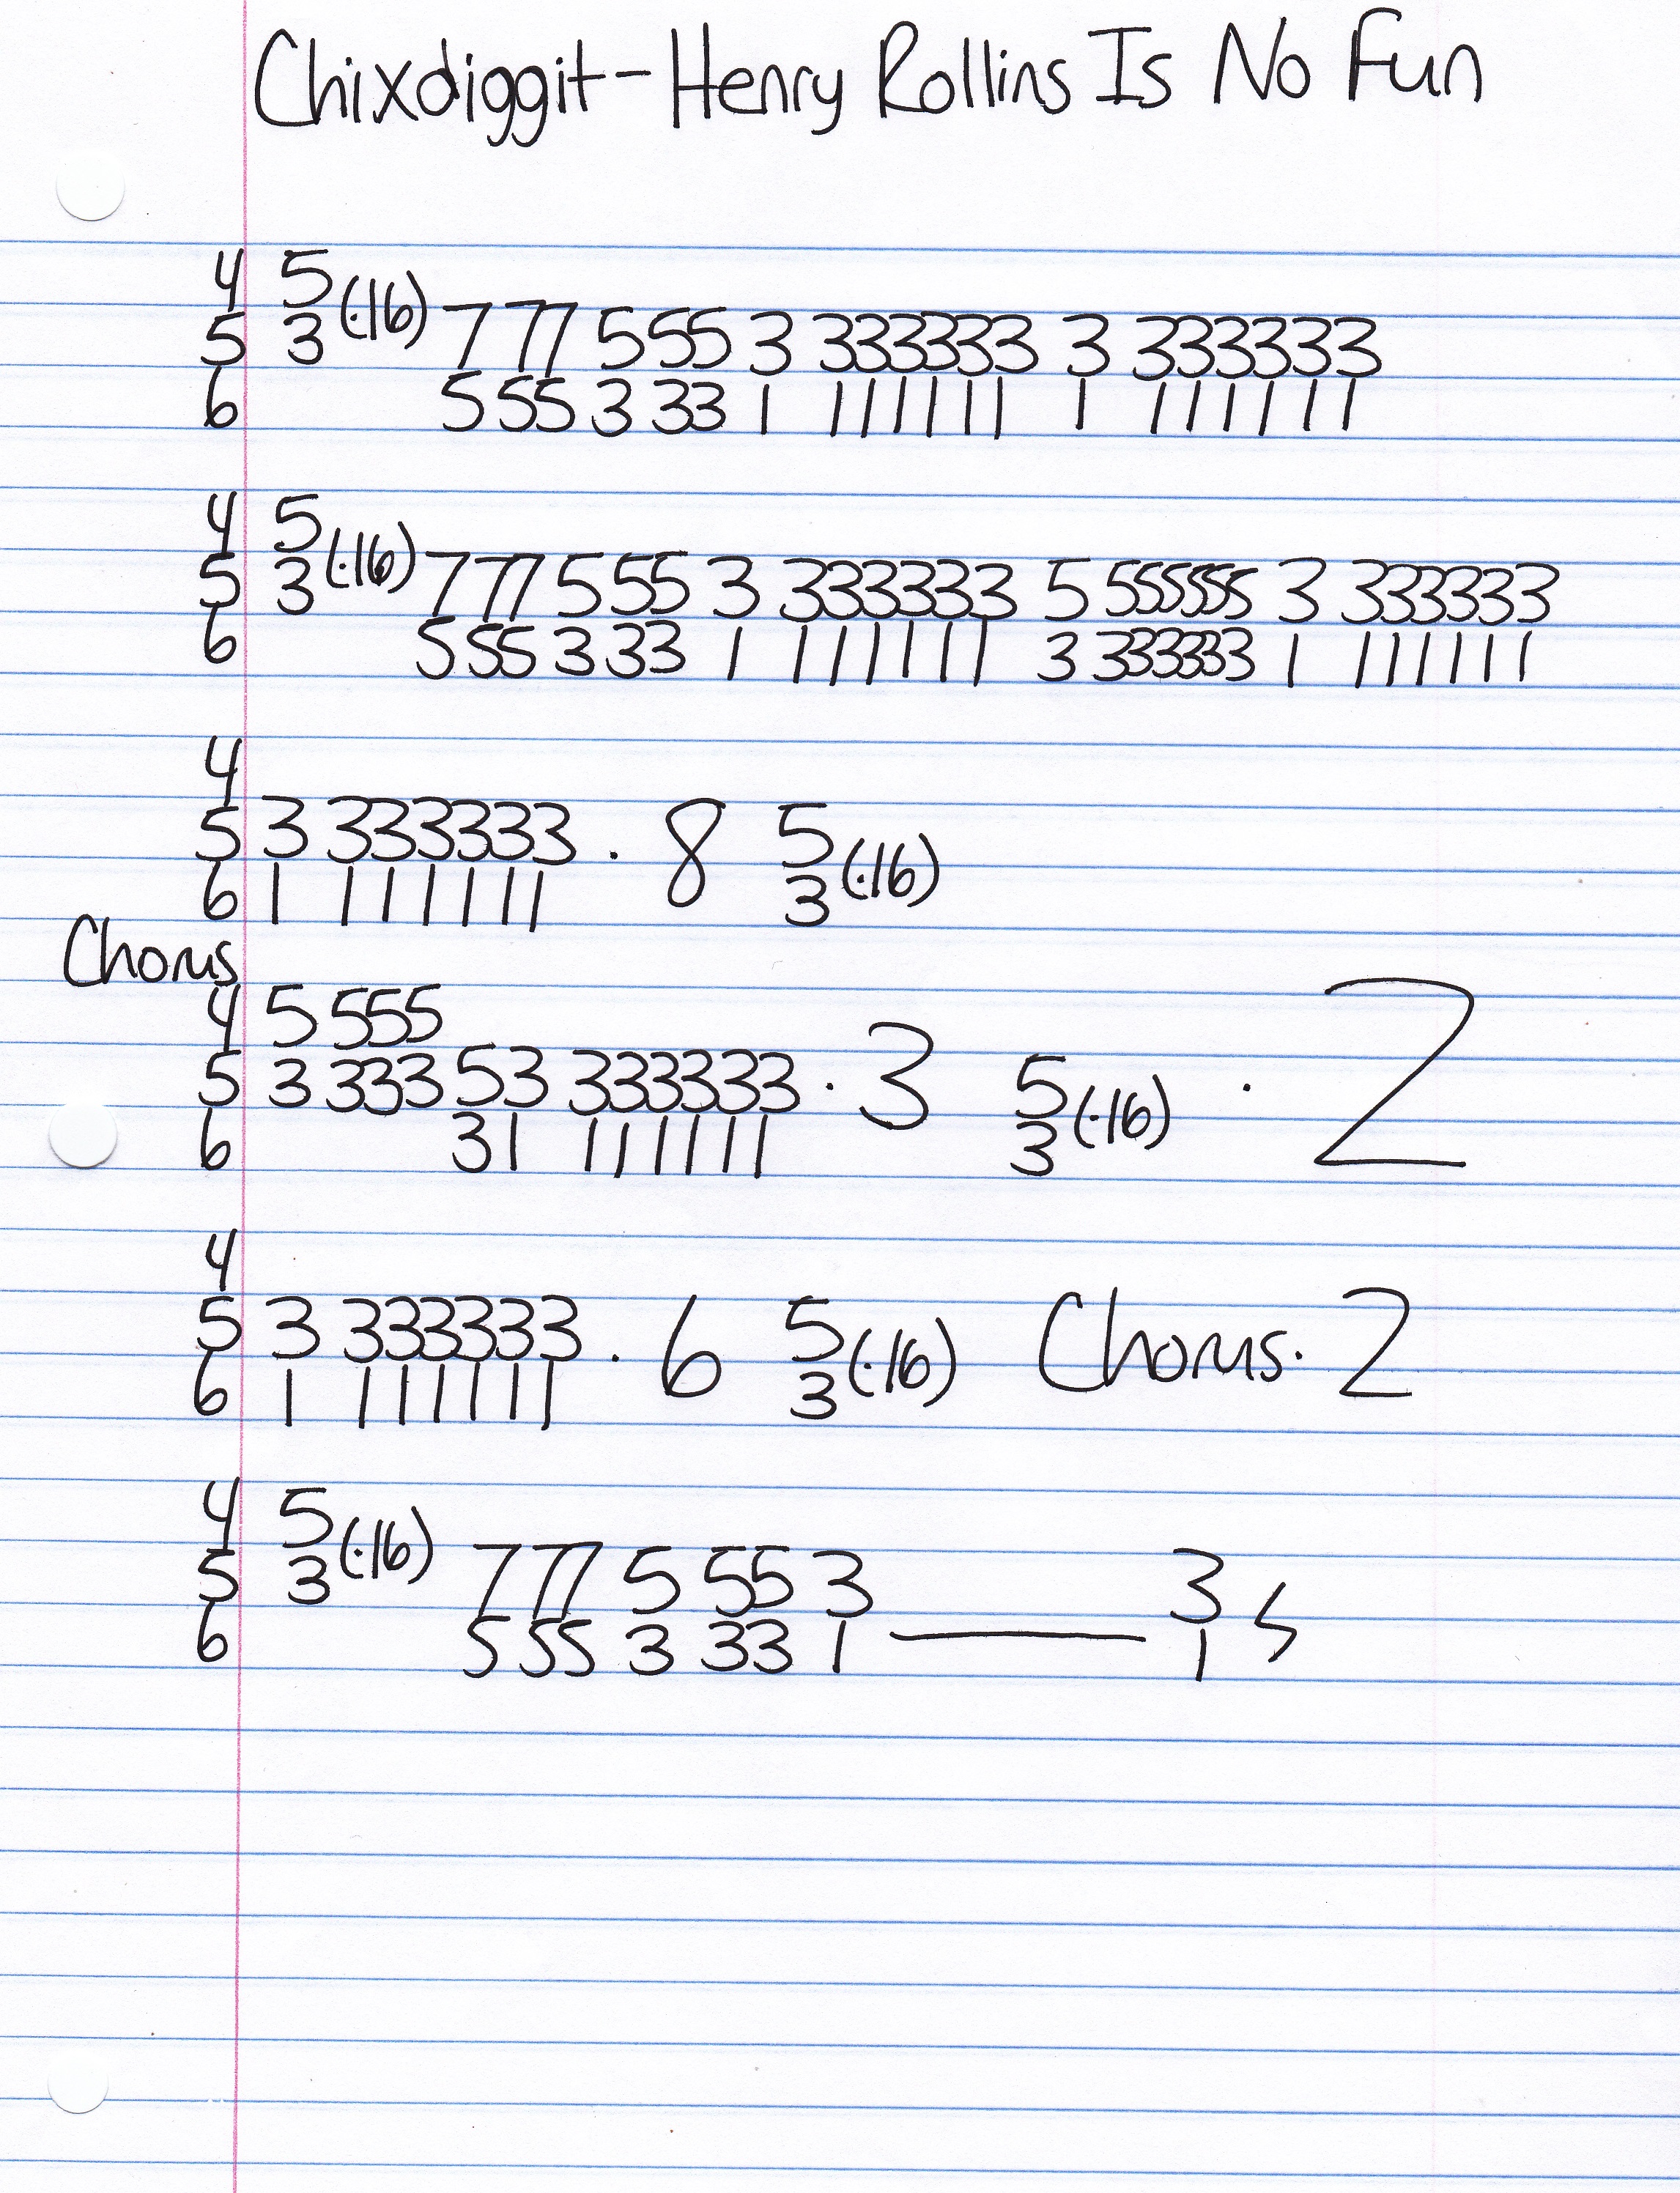 Chixdiggit - Henry Rollins Is No Fun
4 5
5 3 (·16) 7 77 5 55 3 333333 3 333333
6 5 55 3 33 1 111111 1 111111
4 5
5 3 (·16) 7 77 5 55 3 333333 5 555555 3 333333
6 5 55 3 33 1 111111 3 333333 1 111111
4
5 3 333333 · 8 5 (·16)
6 1 111111 3
Chorus
4 5 555
5 3 333 53 333333 · 3 5 (·16) · 2
6 31 111111 3
4
5 3 333333 · 6 5 (·16) Chorus · 2
6 1 111111 3
4 5
5 3 (·16) 7 77 5 55 3 3
6 5 55 3 33 1 — 1